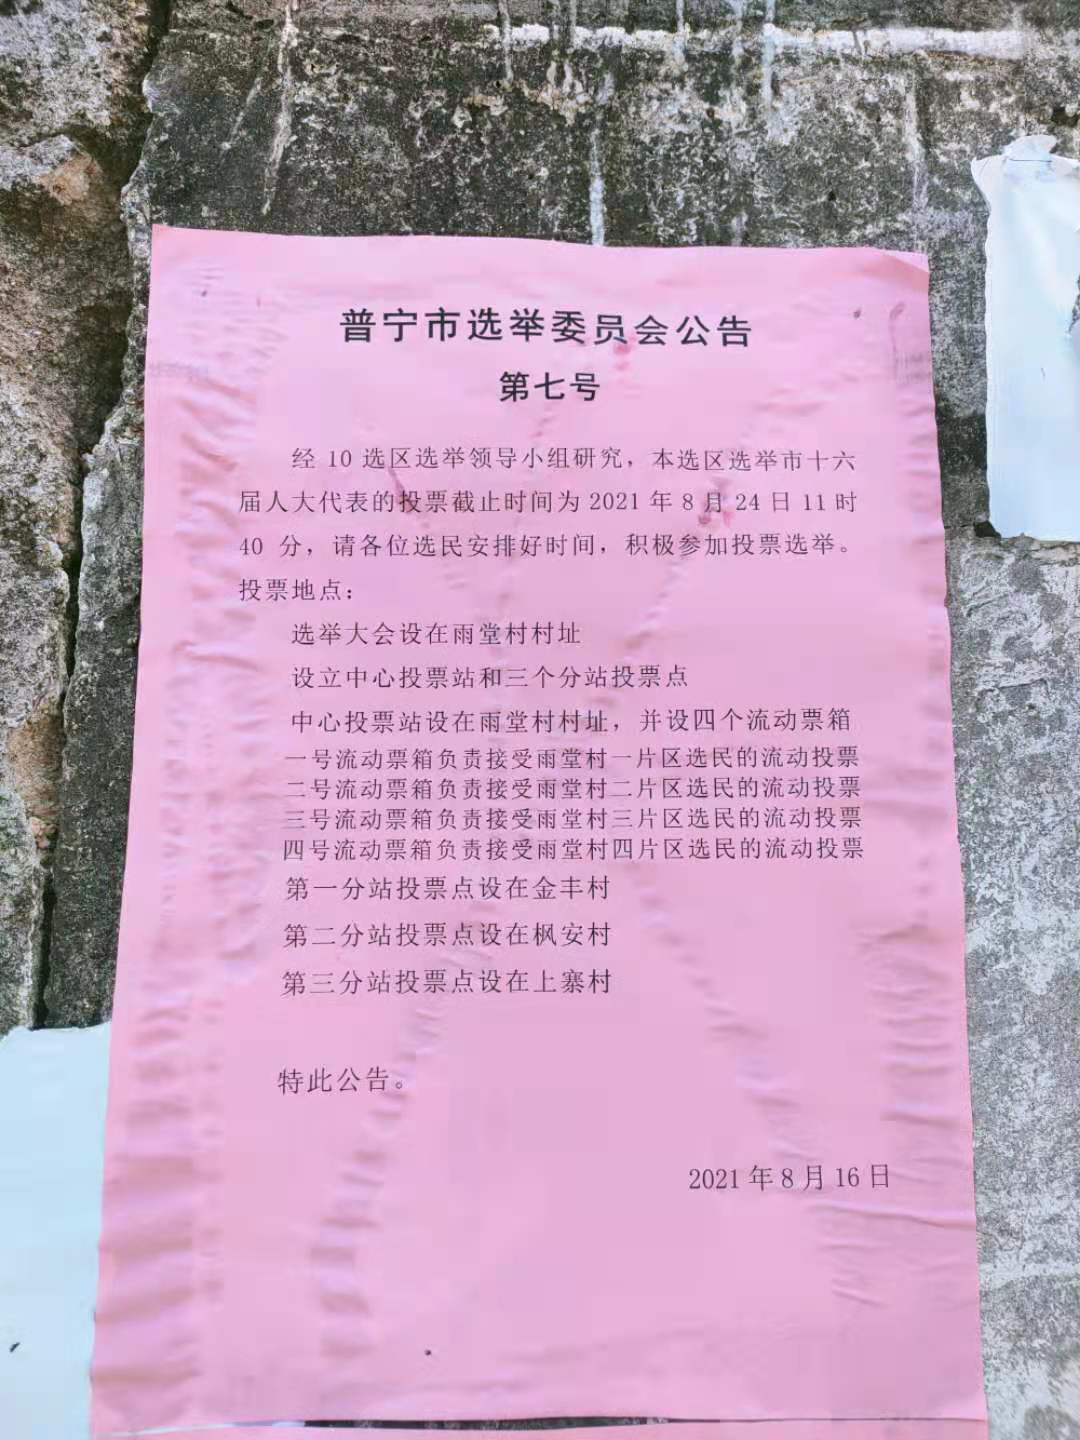 普宁市选举委员会公告
第七号
经 10 选区选举领导小组研究，本选区选举市十六
届人大代表的投票截止时间为 2021 年 8 月 24 日 11 时
40 分，请各位选民安排好时间，积极参加投票选举。
投票地点：
选举大会设在雨堂村村址
设立中心投票站和三个分站投票点
中心投票站设在雨堂村村址，并设四个流动票箱
一号流动票箱负责接受雨堂村一片区选民的流动投票
二号流动票箱负责接受雨堂村二片区选民的流动投票
三号流动票箱负责接受雨堂村三片区选民的流动投票
四号流动票箱负责接受雨堂村四片区选民的流动投票
第一分站投票点设在金丰村
第二分站投票点设在枫安村
第三分站投票点设在上寨村
特此公告。
2021 年 8 月 16 日